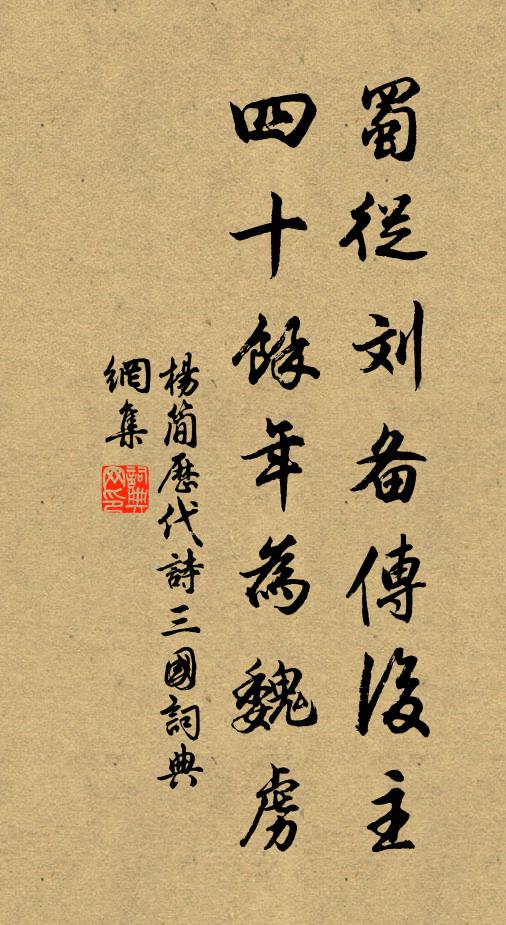 蜀從刘备傳後主
四十餘年為魏虜
楊简歷代詩三國詞典
網集
詞典
网印